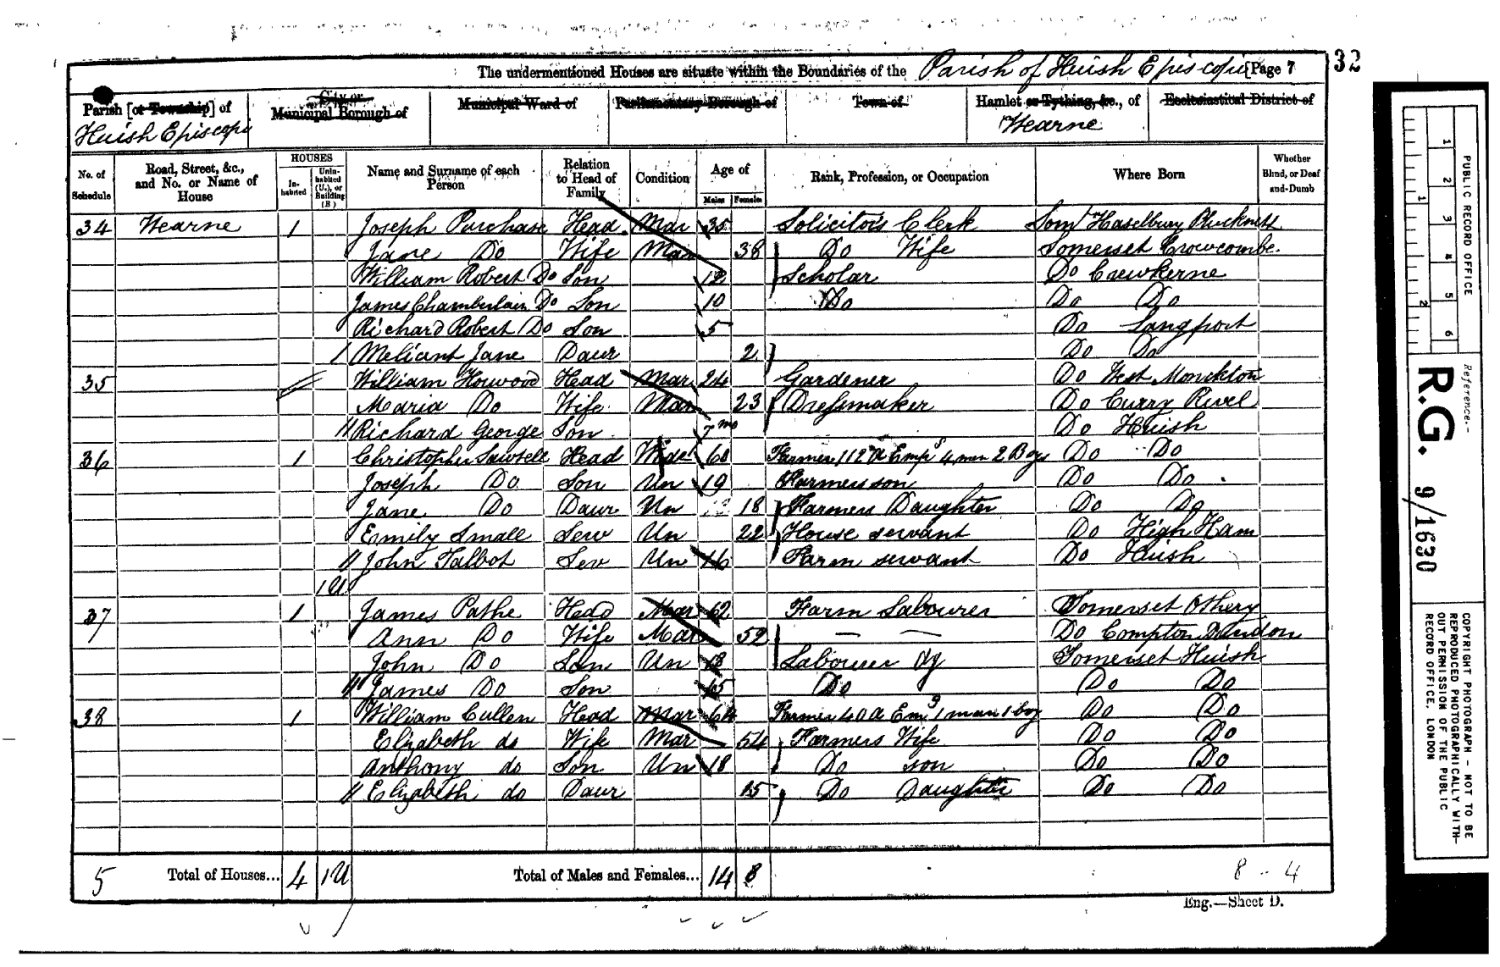 The undermentioned Houses are situate within the Boundaries of the Parish of Huish Episcopi [Page 7
32
Parish [or Township] of Huish Episcopi
City or Municipal Borough of
Municipal Ward of
Parliamentary Borough of
Town of
Hamlet or Tything, &c., of Wearne
Ecclesiastical District of
No. of Schedule
Road, Street, &c., and No. or Name of House
HOUSES
Inhabited
Uninhabited (U.), or Building (B.)
Name and Surname of each Person
Relation to Head of Family
Condition
Age of
Males Females
Rank, Profession, or Occupation
Where Born
Whether Blind, or Deaf-and-Dumb
34 Wearne 1 Joseph Purchase Head Mar 35 Solicitors Clerk Som Haselbury Plucknett
Jane Do Wife Mar 38 Do Wife Somerset Crowcombe
William Robert Do Son 12 Scholar Do Crewkerne
James Chamberlain Do Son 10 Do Do Do
Richard Robert Do Son 5 Do Langport
Jane Daur 2 Do Do
35 William Horwood Head Mar 24 Gardener Do West Monckton
Maria Do Wife Mar 23 Dressmaker Do Curry Rivel
Richard George Son 7 mo Do Huish
36 1 Christopher Sawtell Head 60 Farmer 112 A Emp 4 men 2 Boys Do Do
Joseph Do Son Un 19 Farmers son Do Do
Jane Do Daur Un 18 Farmers Daughter Do Do
Emily Small Serv Un 22 House servant Do High Ham
John Talbot Ser Un 16 Farm servant Do Huish
1U
37 1 James Pathe Head Mar 62 Farm Labourer Somerset Othery
Ann Do Wife Mar 52 — — Do Compton Dundon
John Do Son Un 18 Labourer ag Somerset Huish
James Do Son 15 Do Do Do
38 1 William Cullen Head Mar 64 Farmer 40 A Emg 1 man 1 boy Do Do
Elizabeth do Wife Mar 54 Farmers Wife Do Do
Anthony do Son Un 18 Do son Do Do
Elizabeth do Daur 15 Do Daughter Do Do
5 Total of Houses... 4 1U Total of Males and Females... 14 8 8 - 4
Eng.—Sheet D.
PUBLIC RECORD OFFICE
1 2 3 4 5 6
1 2
Reference:-
R.G. 9/1630
COPYRIGHT PHOTOGRAPH - NOT TO BE REPRODUCED PHOTOGRAPHICALLY WITHOUT PERMISSION OF THE PUBLIC RECORD OFFICE, LONDON